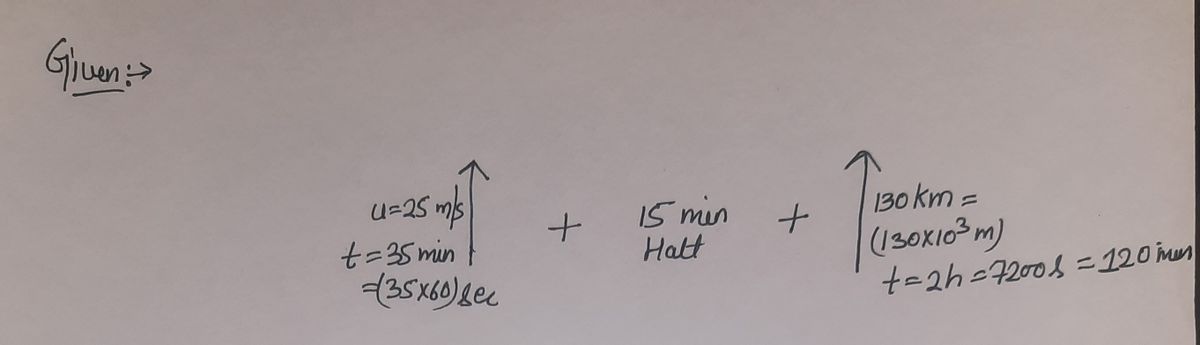 Given:→
u=25 m/s
t=35 min
=(35x60)sec
+
15 min
Halt
+
130 km =
(130x10³ m)
t=2h=7200s=120 min